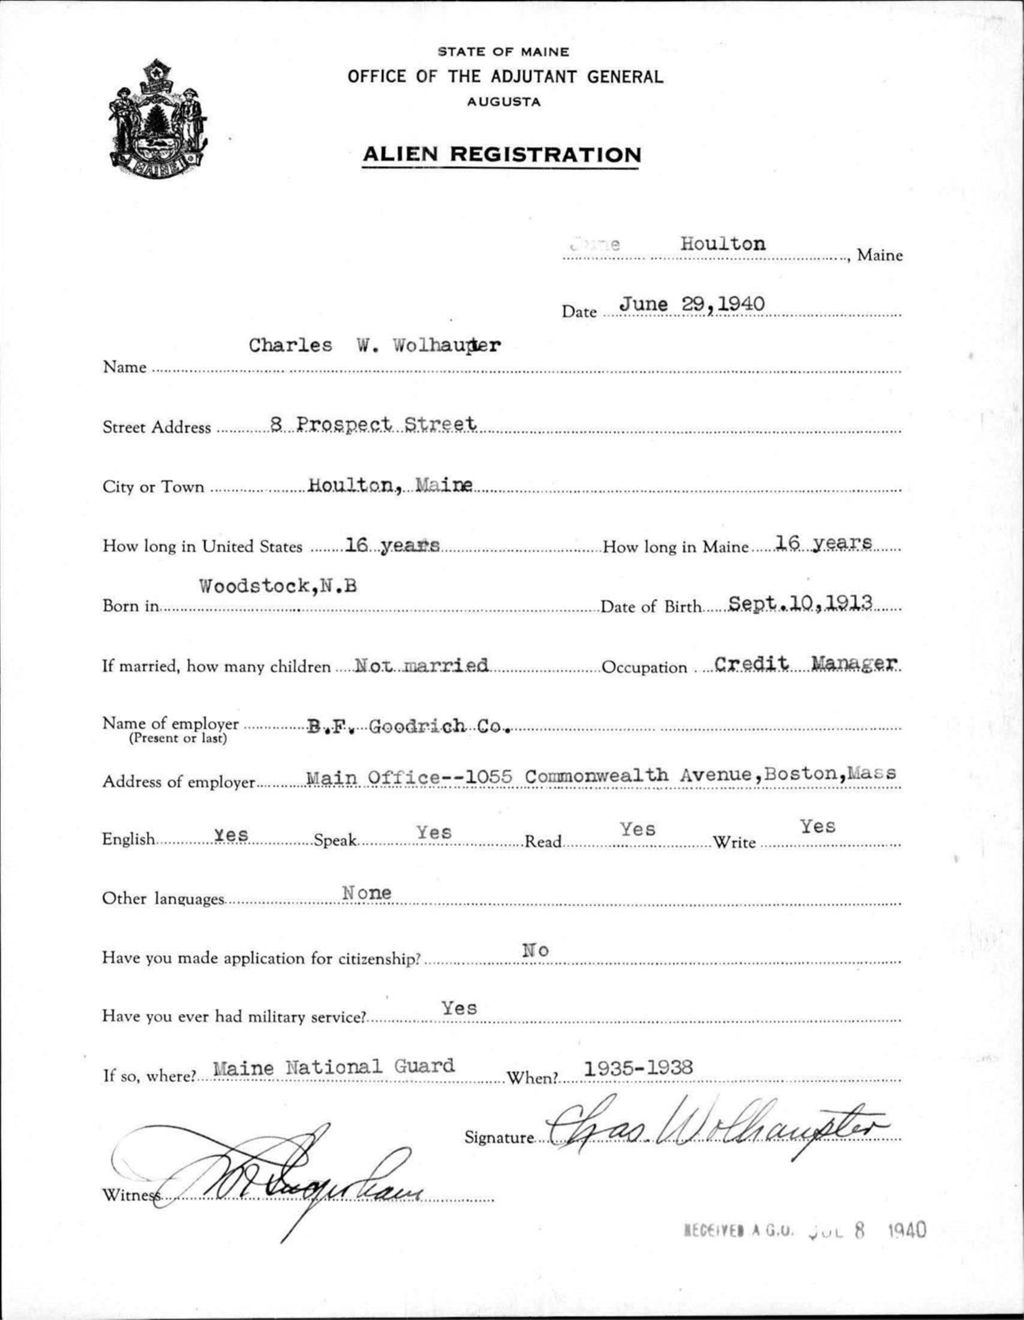 STATE OF MAINE
OFFICE OF THE ADJUTANT GENERAL
AUGUSTA
ALIEN REGISTRATION
MAINE
June Houlton, Maine
Date June 29,1940
Charles W. Wolhaupter
Name
Street Address 8 Prospect Street
City or Town Houlton, Maine
How long in United States 16 years How long in Maine 16 years
Born in Woodstock,N.B Date of Birth Sept.10,1913
If married, how many children Not married Occupation Credit Manager
Name of employer B.F. Goodrich Co.
(Present or last)
Address of employer Main Office--1055 Commonwealth Avenue,Boston,Mass
English Yes Speak Yes Read Yes Write Yes
Other languages None
Have you made application for citizenship? No
Have you ever had military service? Yes
If so, where? Maine National Guard When? 1935-1938
Signature Chas. Wolhaupter
Witness
RECEIVED A.G.O. JUL 8 1940